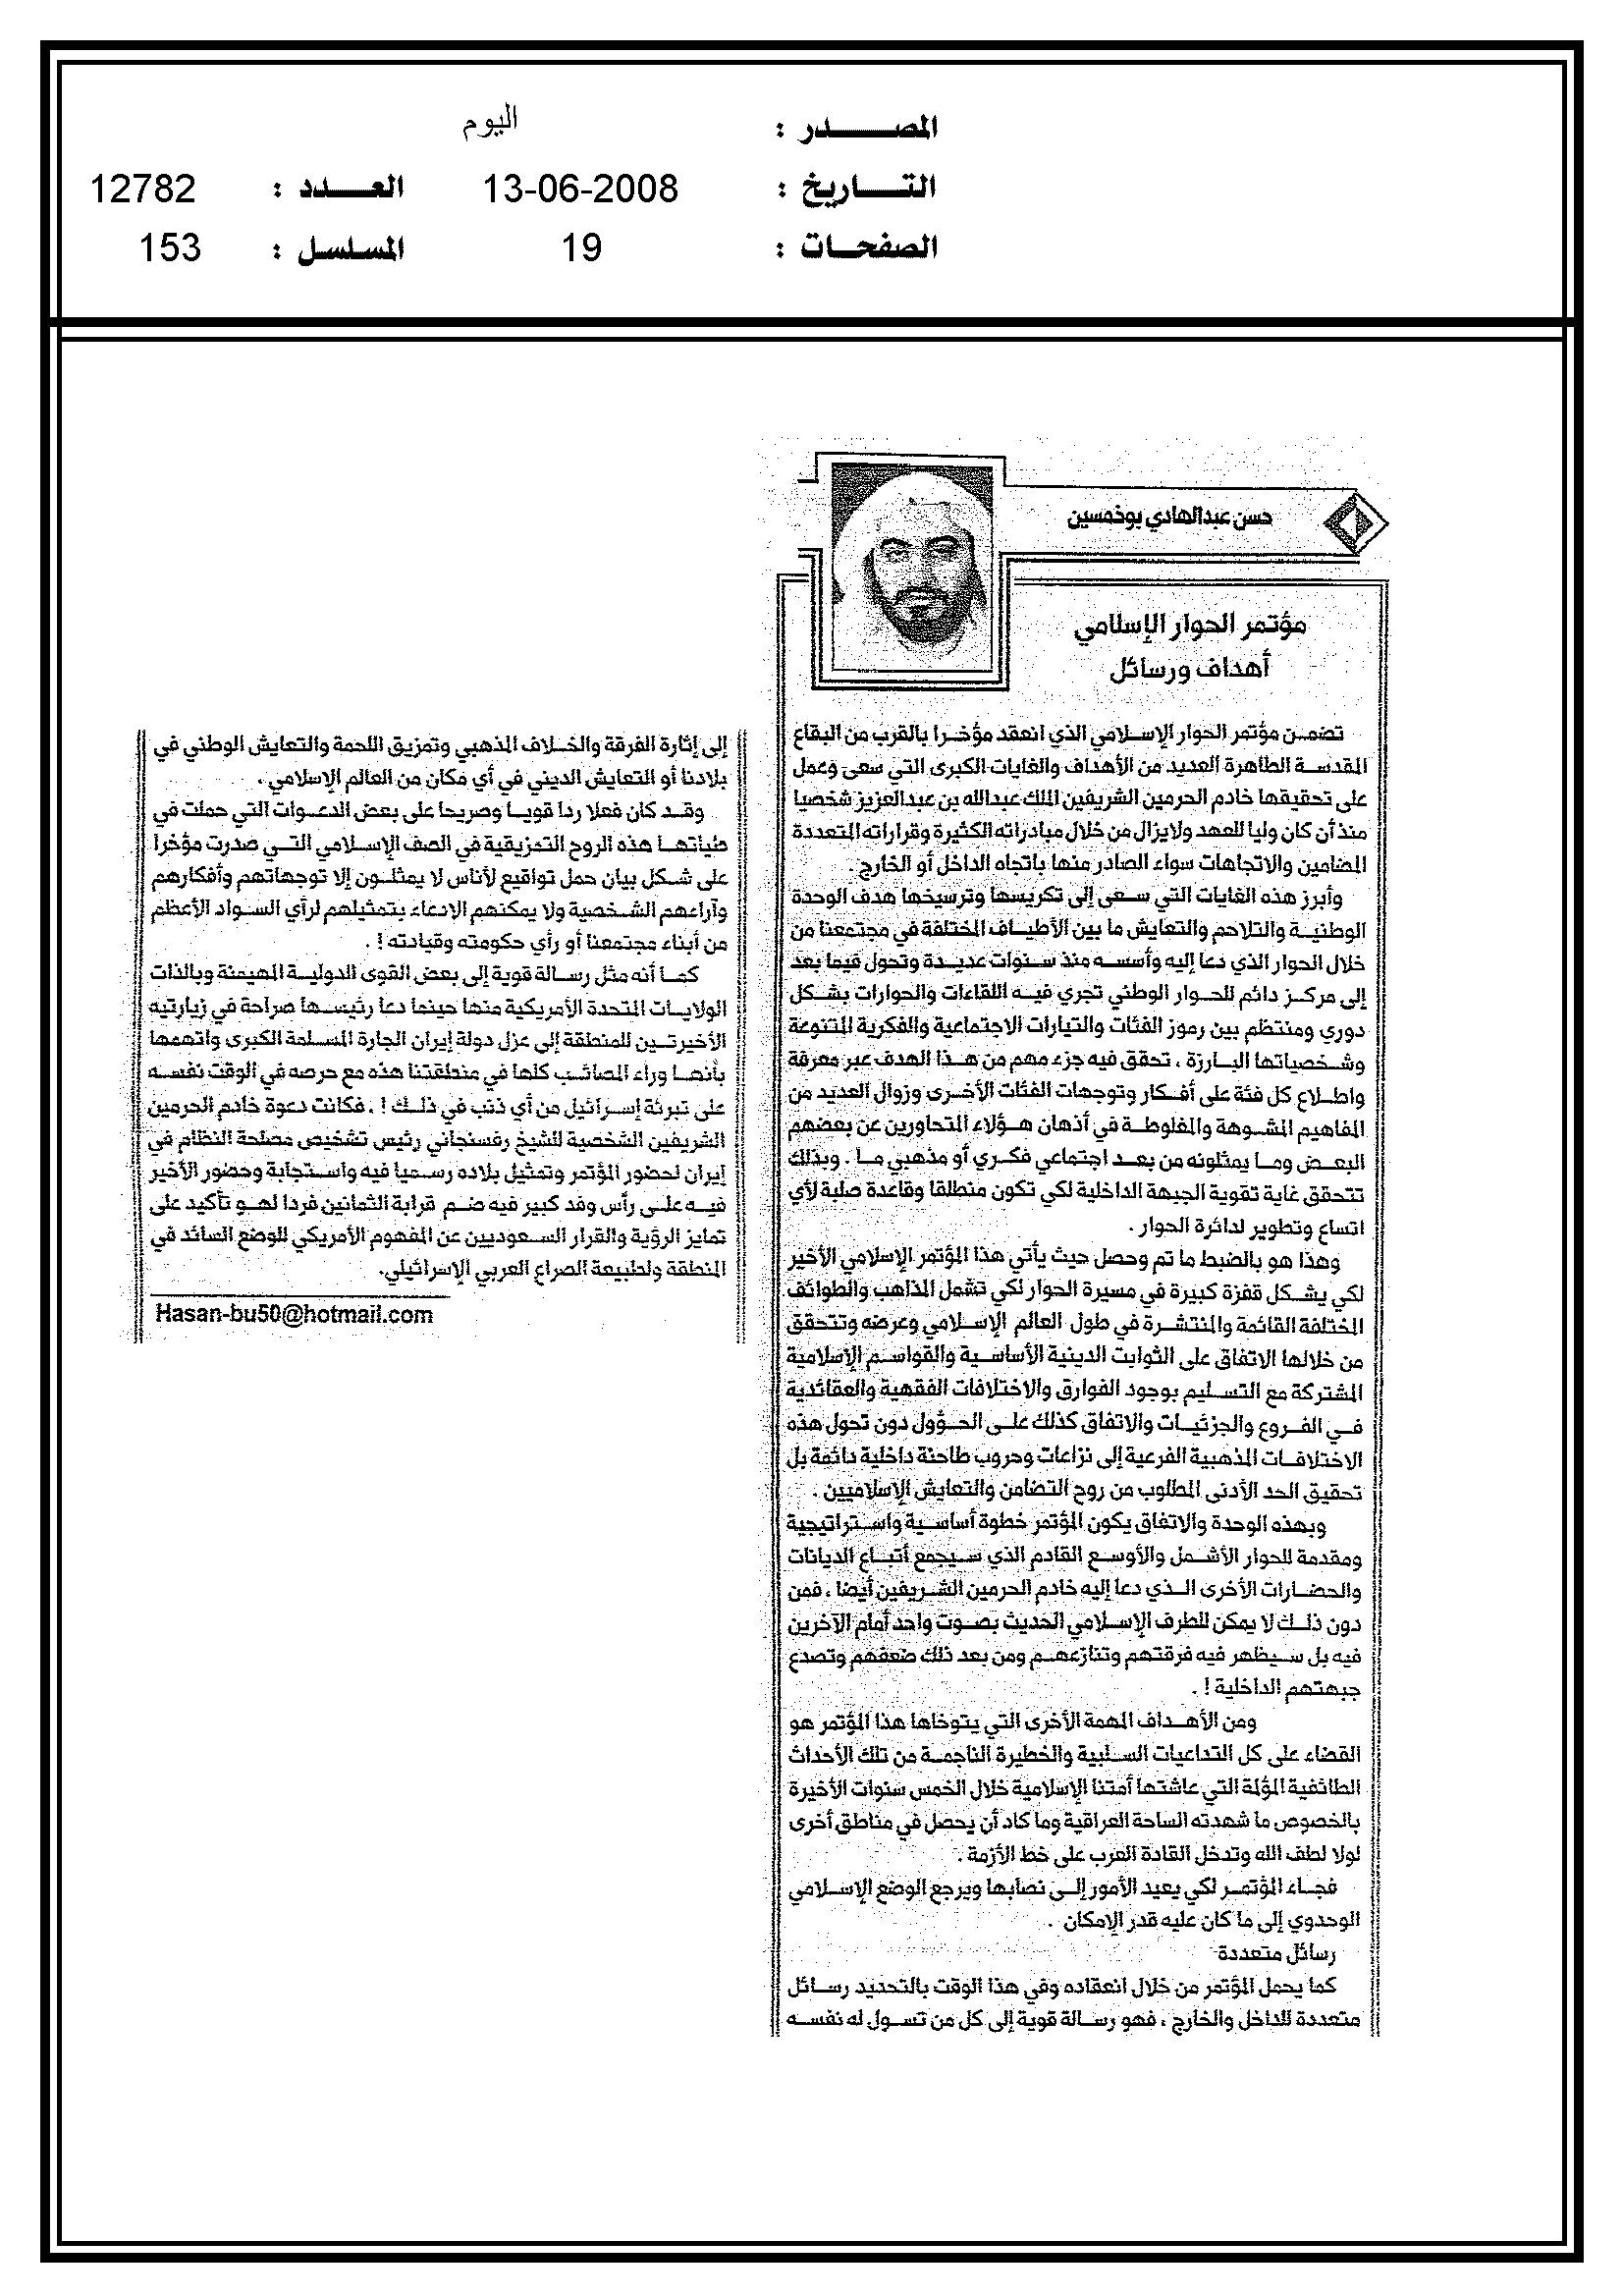 المصدر : اليوم
التاريخ : 13-06-2008 العدد : 12782
الصفحات : 19 المسلسل : 153
حسن عبدالهادي بوخمسين
مؤتمر الحوار الإسلامي
أهداف ورسائل
تضمن مؤتمر الحوار الإسلامي الذي انعقد مؤخرا بالقرب من البقاع
المقدسة الطاهرة العديد من الأهداف والغايات الكبرى التي سعى وعمل
على تحقيقها خادم الحرمين الشريفين الملك عبدالله بن عبدالعزيز شخصيا
منذ أن كان وليا للعهد ولايزال من خلال مبادراته الكثيرة وقراراته المتعددة
المضامين والاتجاهات سواء الصادر منها باتجاه الداخل أو الخارج .
وأبرز هذه الغايات التي سعى إلى تكريسها وترسيخها هدف الوحدة
الوطنية والتلاحم والتعايش ما بين الأطياف المختلفة في مجتمعنا من
خلال الحوار الذي دعا إليه وأسسه منذ سنوات عديدة وتحول فيما بعد
إلى مركز دائم للحوار الوطني تجري فيه اللقاءات والحوارات بشكل
دوري ومنتظم بين رموز الفئات والتيارات الاجتماعية والفكرية المتنوعة
وشخصياتها البارزة ، تحقق فيه جزء مهم من هذا الهدف عبر معرفة
واطلاع كل فئة على أفكار وتوجهات الفئات الأخرى وزوال العديد من
المفاهيم المشوهة والمغلوطة في أذهان هؤلاء المتحاورين عن بعضهم
البعض وما يمثلونه من بعد اجتماعي فكري أو مذهبي ما . وبذلك
تتحقق غاية تقوية الجبهة الداخلية لكي تكون منطلقا وقاعدة صلبة لأي
اتساع وتطوير لدائرة الحوار .
وهذا هو بالضبط ما تم وحصل حيث يأتي هذا المؤتمر الإسلامي الأخير
لكي يشكل قفزة كبيرة في مسيرة الحوار لكي تشمل المذاهب والطوائف
المختلفة القائمة والمنتشرة في طول العالم الإسلامي وعرضه وتتحقق
من خلالها الاتفاق على الثوابت الدينية الأساسية والقواسم الإسلامية
المشتركة مع التسليم بوجود الفوارق والاختلافات الفقهية والعقائدية
في الفروع والجزئيات والاتفاق كذلك على الحؤول دون تحول هذه
الاختلافات المذهبية الفرعية إلى نزاعات وحروب طاحنة داخلية دائمة بل
تحقيق الحد الأدنى المطلوب من روح التضامن والتعايش الإسلاميين .
وبهذه الوحدة والاتفاق يكون المؤتمر خطوة أساسية واستراتيجية
ومقدمة للحوار الأشمل والأوسع القادم الذي سيجمع أتباع الديانات
والحضارات الأخرى الذي دعا إليه خادم الحرمين الشريفين أيضا ، فمن
دون ذلك لا يمكن للطرف الإسلامي الحديث بصوت واحد أمام الآخرين
فيه بل سيظهر فيه فرقتهم وتنازعهم ومن بعد ذلك ضعفهم وتصدع
جبهتهم الداخلية ! .
ومن الأهداف المهمة الأخرى التي يتوخاها هذا المؤتمر هو
القضاء على كل التداعيات السلبية والخطيرة الناجمة من تلك الأحداث
الطائفية المؤلمة التي عاشتها أمتنا الإسلامية خلال الخمس سنوات الأخيرة
بالخصوص ما شهدته الساحة العراقية وما كاد أن يحصل في مناطق أخرى
لولا لطف الله وتدخل القادة العرب على خط الأزمة .
فجاء المؤتمر لكي يعيد الأمور إلى نصابها ويرجع الوضع الإسلامي
الوحدوي إلى ما كان عليه قدر الإمكان .
رسائل متعددة
كما يحمل المؤتمر من خلال انعقاده وفي هذا الوقت بالتحديد رسائل
متعددة للداخل والخارج ، فهو رسالة قوية إلى كل من تسول له نفسه
إلى إثارة الفرقة والخلاف المذهبي وتمزيق اللحمة والتعايش الوطني في
بلادنا أو التعايش الديني في أي مكان من العالم الإسلامي .
وقد كان فعلا ردا قويا وصريحا على بعض الدعوات التي حملت في
طياتها هذه الروح التمزيقية في الصف الإسلامي التي صدرت مؤخرا
على شكل بيان حمل تواقيع لأناس لا يمثلون إلا توجهاتهم وأفكارهم
وآراءهم الشخصية ولا يمكنهم الادعاء بتمثيلهم لرأي السواد الأعظم
من أبناء مجتمعنا أو رأي حكومته وقيادته ! .
كما أنه مثل رسالة قوية إلى بعض القوى الدولية المهيمنة وبالذات
الولايات المتحدة الأمريكية منها حينما دعا رئيسها صراحة في زيارتيه
الأخيرتين للمنطقة إلى عزل دولة إيران الجارة المسلمة الكبرى واتهمها
بأنها وراء المصائب كلها في منطقتنا هذه مع حرصه في الوقت نفسه
على تبرئة إسرائيل من أي ذنب في ذلك ! ، فكانت دعوة خادم الحرمين
الشريفين الشخصية للشيخ رفسنجاني رئيس تشخيص مصلحة النظام في
إيران لحضور المؤتمر وتمثيل بلاده رسميا فيه واستجابة وحضور الأخير
فيه على رأس وفد كبير فيه ضم قرابة الثمانين فردا لهو تأكيد على
تمايز الرؤية والقرار السعوديين عن المفهوم الأمريكي للوضع السائد في
المنطقة ولطبيعة الصراع العربي الإسرائيلي.
Hasan-bu50@hotmail.com